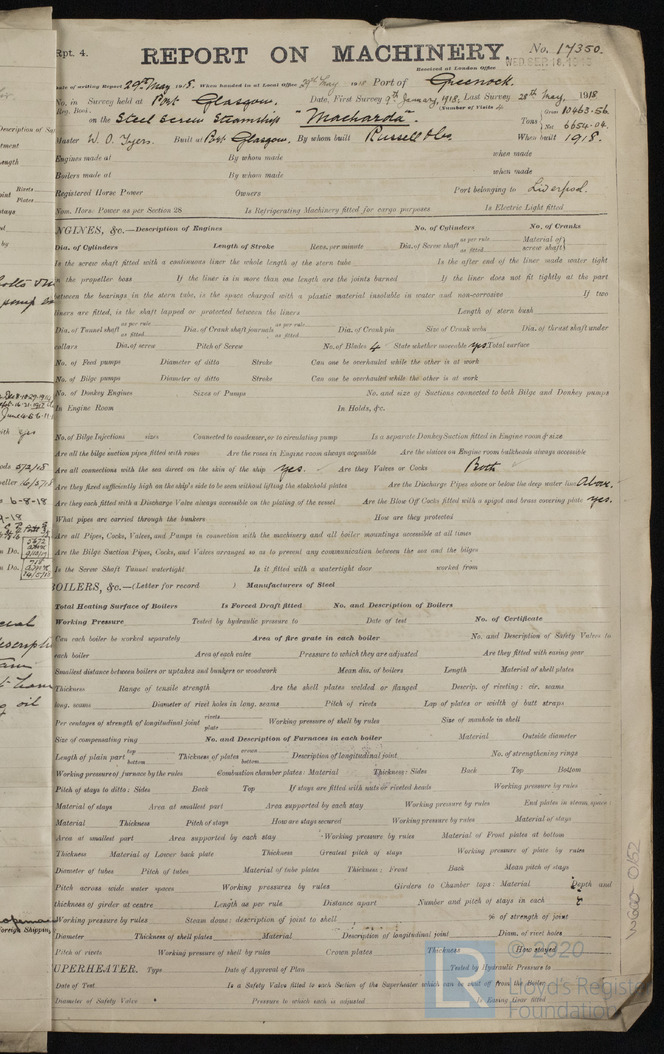 Rpt. 4.
REPORT ON MACHINERY.
No. 17350.
Received at London Office
WED. SEP. 18. 1918
Date of writing Report 29th May 1918. When handed in at Local Office 29th May 1918 Port of Greenock.
No. in Reg. Book. Survey held at Port Glasgow. Date, First Survey 9th January, 1918, Last Survey 28th May, 1918
(Number of Visits
on the Steel Screw Steamship "Macharda". Tons { Gross 10463.56. Net 6654.04.
Master W. O. Tyers. Built at Port Glasgow. By whom built Russell & Co. When built 1918.
Engines made at By whom made when made
Boilers made at By whom made when made
Registered Horse Power Owners Port belonging to Liverpool.
Nom. Horse Power as per Section 28 Is Refrigerating Machinery fitted for cargo purposes Is Electric Light fitted
ENGINES, &c.—Description of Engines No. of Cylinders No. of Cranks
Dia. of Cylinders Length of Stroke Revs. per minute Dia. of Screw shaft as per rule as fitted Material of screw shaft
Is the screw shaft fitted with a continuous liner the whole length of the stern tube Is the after end of the liner made water tight
in the propeller boss If the liner is in more than one length are the joints burned If the liner does not fit tightly at the part
between the bearings in the stern tube, is the space charged with a plastic material insoluble in water and non-corrosive If two
liners are fitted, is the shaft lapped or protected between the liners Length of stern bush
Dia. of Tunnel shaft as per rule as fitted Dia. of Crank shaft journals as per rule as fitted Dia. of Crank pin Size of Crank webs Dia. of thrust shaft under
collars Dia. of screw Pitch of Screw No. of Blades 4 State whether moveable yes Total surface
No. of Feed pumps Diameter of ditto Stroke Can one be overhauled while the other is at work
No. of Bilge pumps Diameter of ditto Stroke Can one be overhauled while the other is at work
No. of Donkey Engines Sizes of Pumps No. and size of Suctions connected to both Bilge and Donkey pumps
In Engine Room In Holds, &c.
No. of Bilge Injections sizes Connected to condenser, or to circulating pump Is a separate Donkey Suction fitted in Engine room & size
Are all the bilge suction pipes fitted with roses Are the roses in Engine room always accessible Are the sluices on Engine room bulkheads always accessible
Are all connections with the sea direct on the skin of the ship Yes. Are they Valves or Cocks Both
Are they fixed sufficiently high on the ship's side to be seen without lifting the stokehold plates Are the Discharge Pipes above or below the deep water line Above.
Are they each fitted with a Discharge Valve always accessible on the plating of the vessel Are the Blow Off Cocks fitted with a spigot and brass covering plate yes.
What pipes are carried through the bunkers How are they protected
Are all Pipes, Cocks, Valves, and Pumps in connection with the machinery and all boiler mountings accessible at all times
Are the Bilge Suction Pipes, Cocks, and Valves arranged so as to prevent any communication between the sea and the bilges
Is the Screw Shaft Tunnel watertight Is it fitted with a watertight door worked from
BOILERS, &c.—(Letter for record ) Manufacturers of Steel
Total Heating Surface of Boilers Is Forced Draft fitted No. and Description of Boilers
Working Pressure Tested by hydraulic pressure to Date of test No. of Certificate
Can each boiler be worked separately Area of fire grate in each boiler No. and Description of Safety Valves to
each boiler Area of each valve Pressure to which they are adjusted Are they fitted with easing gear
Smallest distance between boilers or uptakes and bunkers or woodwork Mean dia. of boilers Length Material of shell plates
Thickness Range of tensile strength Are the shell plates welded or flanged Descrip. of riveting: cir. seams
long. seams Diameter of rivet holes in long. seams Pitch of rivets Lap of plates or width of butt straps
Per centages of strength of longitudinal joint rivets plate Working pressure of shell by rules Size of manhole in shell
Size of compensating ring No. and Description of Furnaces in each boiler Material Outside diameter
Length of plain part top bottom Thickness of plates crown bottom Description of longitudinal joint No. of strengthening rings
Working pressure of furnace by the rules Combustion chamber plates: Material Thickness: Sides Back Top Bottom
Pitch of stays to ditto: Sides Back Top If stays are fitted with nuts or riveted heads Working pressure by rules
Material of stays Area at smallest part Area supported by each stay Working pressure by rules End plates in steam space:
Material Thickness Pitch of stays How are stays secured Working pressure by rules Material of stays
Area at smallest part Area supported by each stay Working pressure by rules Material of Front plates at bottom
Thickness Material of Lower back plate Thickness Greatest pitch of stays Working pressure of plate by rules
Diameter of tubes Pitch of tubes Material of tube plates Thickness: Front Back Mean pitch of stays
Pitch across wide water spaces Working pressures by rules Girders to Chamber tops: Material Depth and
thickness of girder at centre Length as per rule Distance apart Number and pitch of stays in each
Working pressure by rules Steam dome: description of joint to shell % of strength of joint
Diameter Thickness of shell plates Material Description of longitudinal joint Diam. of rivet holes
Pitch of rivets Working pressure of shell by rules Crown plates Thickness How stayed
SUPERHEATER. Type Date of Approval of Plan Tested by Hydraulic Pressure to
Date of Test Is a Safety Valve fitted to each Section of the Superheater which can be shut off from the Boiler
Diameter of Safety Valve Pressure to which each is adjusted Is Easing Gear fitted
W600-0152
LR
© 2020
Lloyd's Register
Foundation